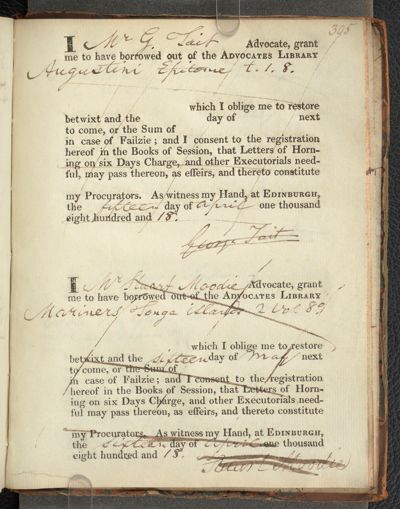 395
I Mr G. Tait Advocate, grant
me to have borrowed out of the ADVOCATES LIBRARY
Augustini Epitome t. 1. 8.
which I oblige me to restore
betwixt and the day of next
to come, or the Sum of
in case of Failzie; and I consent to the registration
hereof in the Books of Session, that Letters of Horn-
ing on six Days Charge, and other Executorials need-
ful, may pass thereon, as effeirs, and thereto constitute
my Procurators. As witness my Hand, at EDINBURGH,
the fifteen day of April one thousand
eight hundred and 18.
George Tait
I Mr Stuart Moodie Advocate, grant
me to have borrowed out of the ADVOCATES LIBRARY
Mariners Tonga islands 2 vol 89
which I oblige me to restore
betwixt and the sixteen day of May next
to come, or the Sum of
in case of Failzie; and I consent to the registration
hereof in the Books of Session, that Letters of Horn-
ing on six Days Charge, and other Executorials need-
ful may pass thereon, as effeirs, and thereto constitute
my Procurators. As witness my Hand, at EDINBURGH,
the sixteen day of April one thousand
eight hundred and 18.
Stuart Moodie